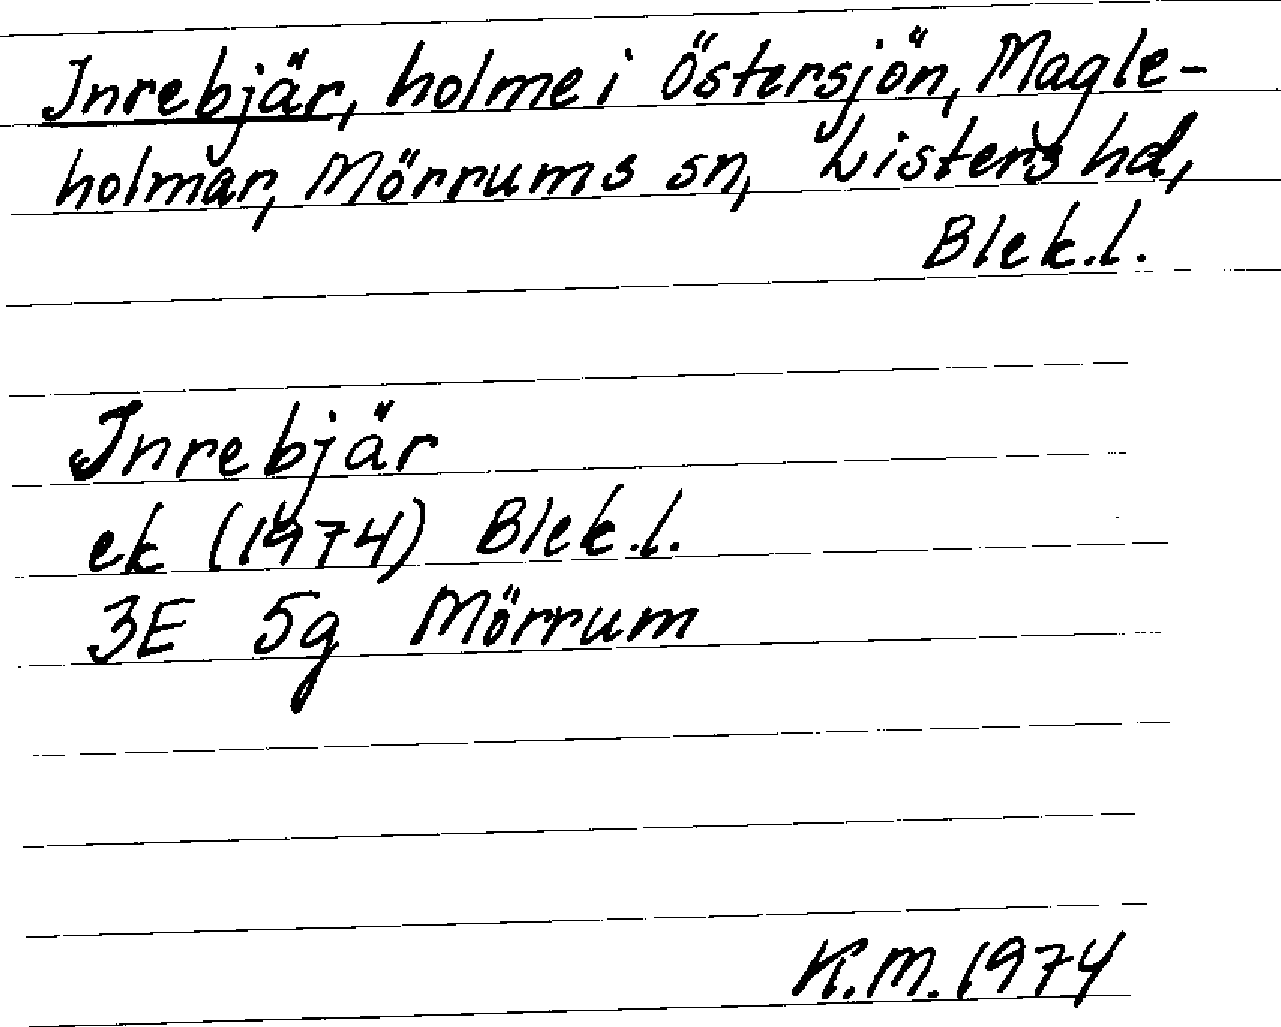 Inrebjär, holme i Östersjön, Magle-
holmar, Mörrums sn, Listers hd,
Blek.l.
Inrebjär
ek (1974) Blek.l.
3E 5g Mörrum
K.M. 1974